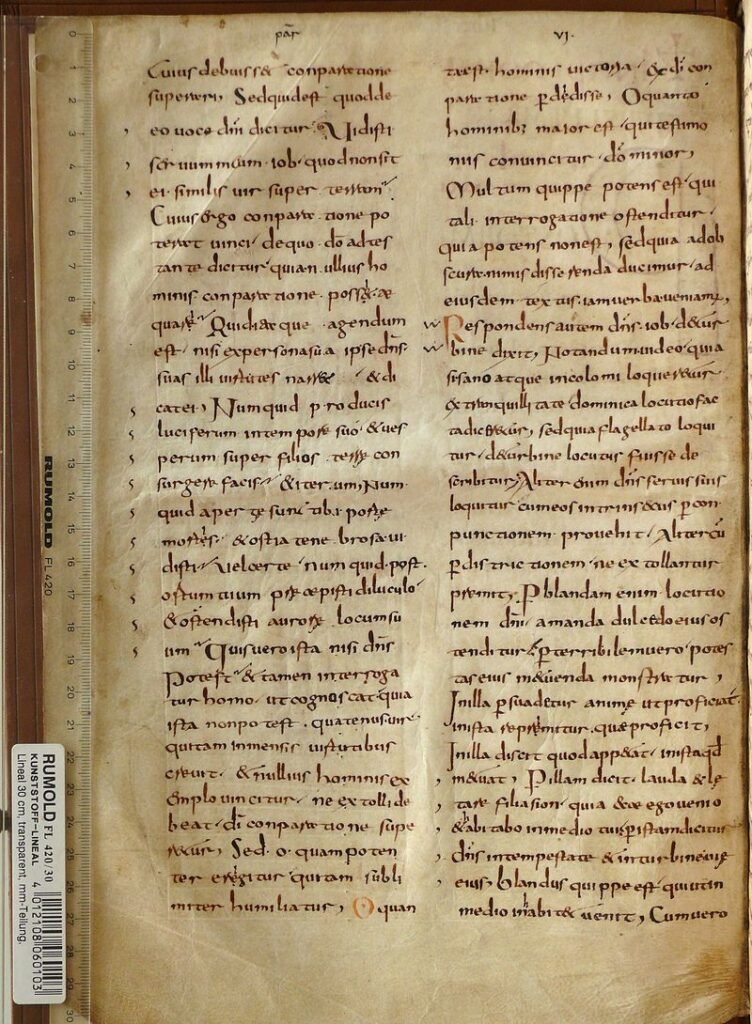 par̄
VI·
Cuius debuisset conparatione
superari, Sed quid est quod de
eo uoce dn̄i dicitur, Vidisti
seruum meum iob· quod non sit
ei similis uir super terram
Cuius ergo conparatione po
terat uinci· de quo dō adtes
tante dicitur quia nullius ho
minis conparatione possit· ae
quari, Quid itaque agendum
est· nisi ex persona sua ipse dn̄s
suas illi uirtutes narret· & di
cat ei, Numquid producis
luciferum in tempore suo· & ues
perum super filios terre con
surgere facis· & iterum, Num
quid aperte sunt tibi porte
mortis· & ostia tenebrosa ui
disti· Vel certe numquid post
ortum tuum precepisti diluculo·
& ostendisti aurore locum su
um Quis uero ista nisi dn̄s
Potest & tamen interroga
tur homo· ut cognoscat quia
ista non potest· quatenus uir
qui tam inmensis uirtutibus
creuit· & nullius hominis ex
emplo uincitur· ne extolli de
beat· dī conparatione supe
retur, Sed o· quam poten
ter erigitur qui tam subli
miter humiliatur, O quan
ta est· hominis uictoria· & dī con
paratione pdidisse, O quanto
hominibȝ maior est· qui testimo
niis conuincitur· dō minor,
Multum quippe potens est· qui
tali interrogatione ostenditur·
quia potens non est, sed quia ad ob
scura nimis disserenda ducimur· ad
eiusdem textus· iam uerba ueniam;
Respondens autem dn̄s· iob· de tur
bine dixit, Notandum uideo quia
si sano atque incolomi loqueretur·
ex tranquillitate dominica locutio fac
ta diceretur, sed quia flagellato loqui
tur· de turbine locutus fuisse de
scribitur, Aliter enim dn̄s seruis suis
loquitur cum eos intrinsecus p con
punctionem prouehit· Aliter cū
p districtionem· ne extollantur
premit, P blandam enim locutio
nem dn̄i· amanda dulcedo eius os
tenditur· p terribilem uero potes
tas eius metuenda monstratur,
In illa p suadetur anime ut proficiat·
in ista reprimitur· quae proficit,
In illa discit quod appetat· in ista qd
metuat, P illam dicit· lauda & le
tare filia sion· quia ecce ego uenio
& abitabo in medio tui· p istam dicitur
dn̄s in tempestate & in turbine uiae
eius· blandus quippe est· qui ut in
medio inabitet uenit, Cum uero
RUMOLD
FL 420
RUMOLD FL 420/30
KUNSTSTOFF-LINEAL
Lineal 30 cm, transparent, mm-Teilung,
4 012108 060103
0
1
2
3
4
5
6
7
8
9
10
11
12
13
14
15
16
17
18
19
20
21
22
23
24
25
26
27
28
29
30